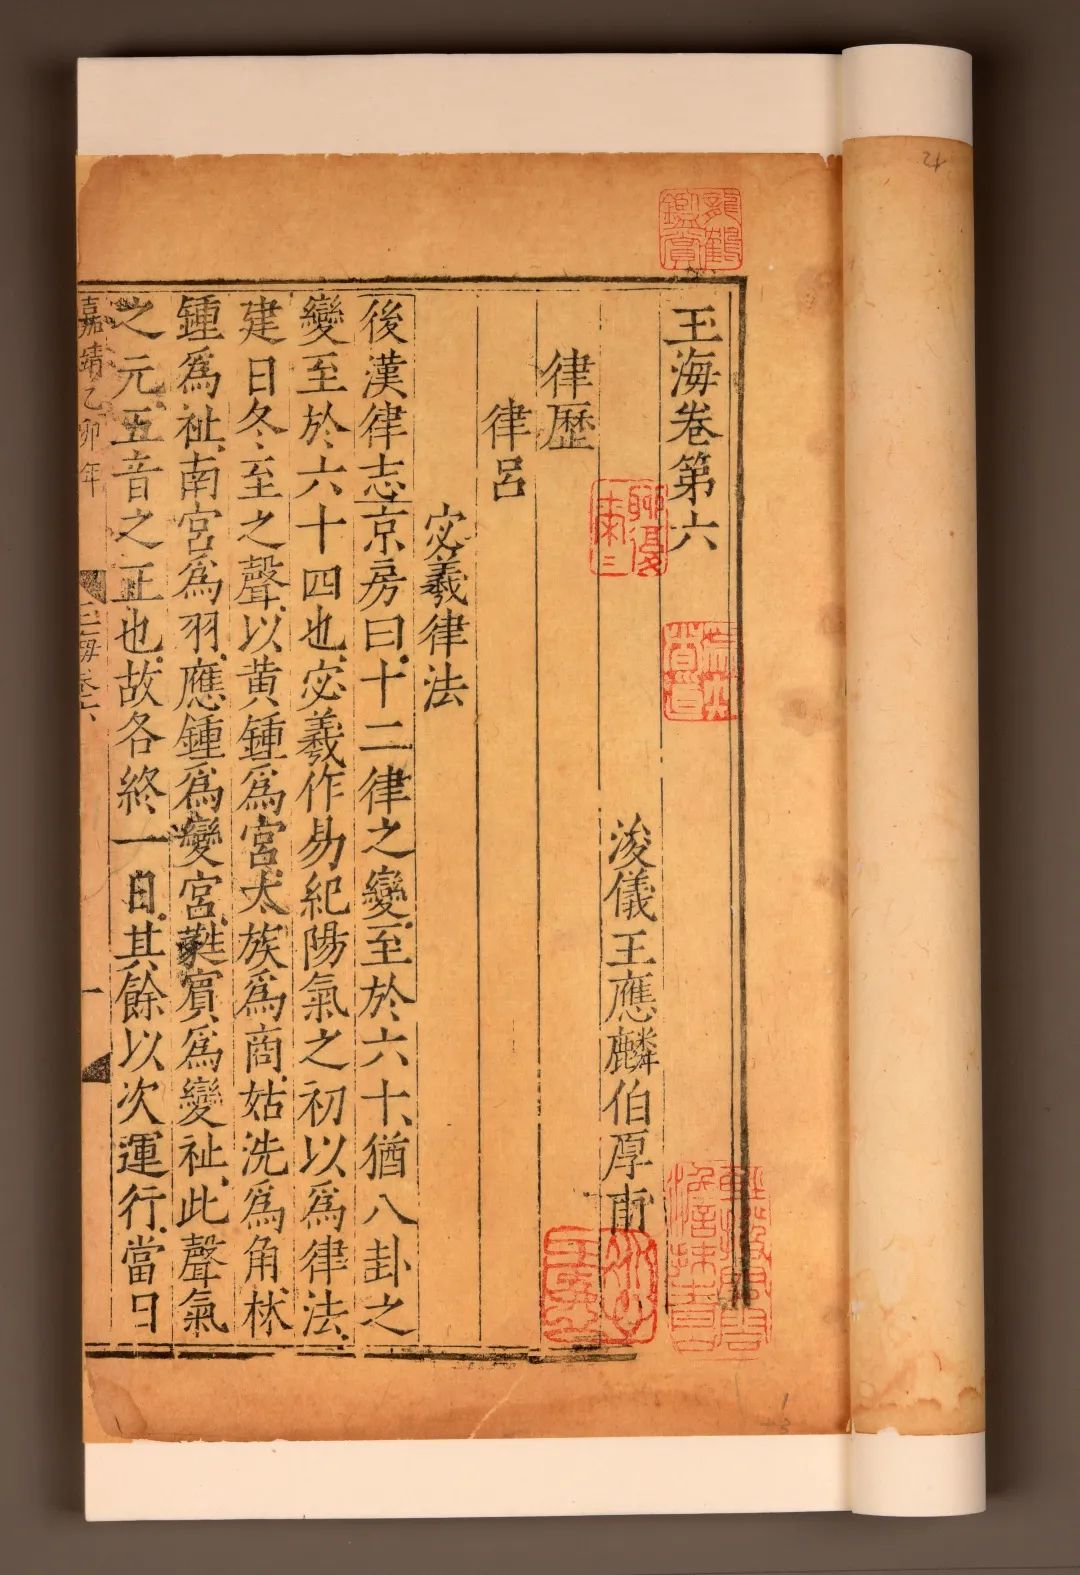 玉海卷第六
浚儀王應麟伯厚甫
律歷
律呂
宓羲律法
後漢律志京房曰十二律之變至於六十猶八卦之
變至於六十四也宓羲作易紀陽氣之初以爲律法
建日冬至之聲以黃鍾爲宮太族爲商姑洗爲角林
鍾爲祉南宮爲羽應鍾爲變宮蕤賔爲變祉此聲氣
之元五音之正也故各終一日其餘以次運行當日
嘉靖乙卯年
玉海卷六
一
龍鶴鑑賞